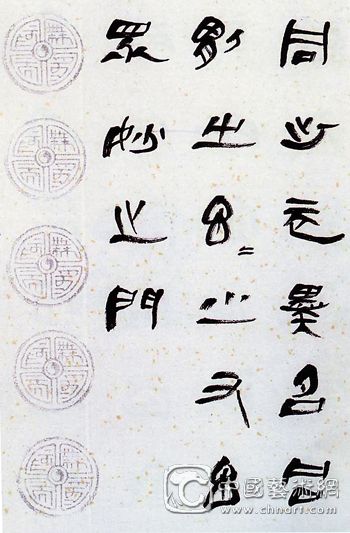 同出而異名同
謂之玄〻之又玄
眾妙之門
國藝術網
www.chnart.com